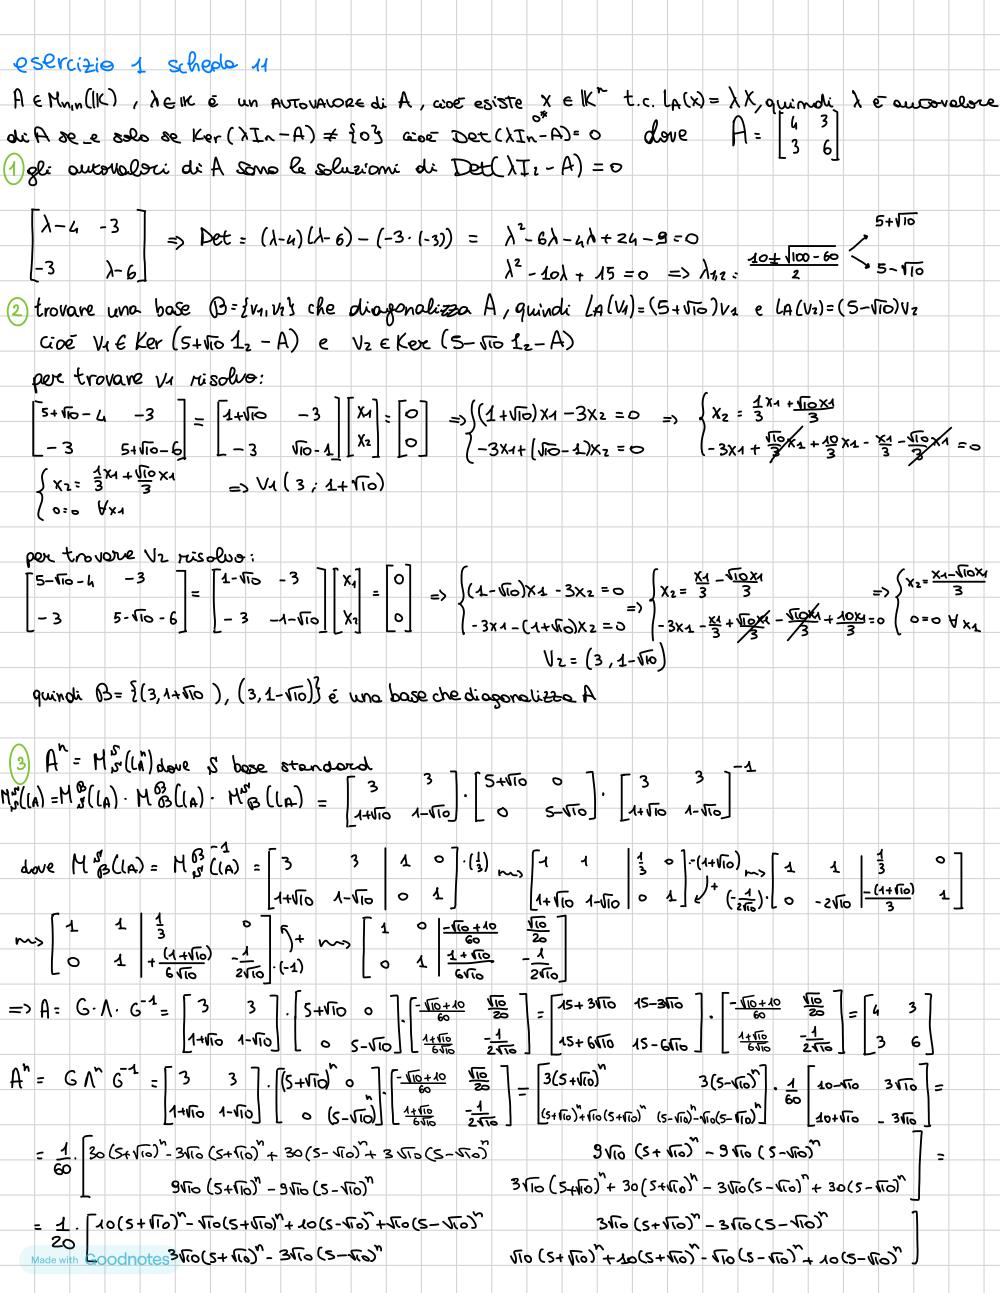 esercizio 1 scheda 11
A ∈ Mn,n(𝕂), λ∈𝕂 é un AUTOVALORE di A, cioé esiste x ∈ 𝕂ⁿ t.c. LA(x) = λX, quindi λ é autovalore
≠0
di A se e solo se Ker(λIn-A) ≠ {0} cioé Det(λIn-A)=0 dove A = [4 3; 3 6]
① gli autovalori di A sono le soluzioni di Det(λI2-A) = 0
[λ-4 -3; -3 λ-6] ⇒ Det = (λ-4)(λ-6) - (-3·(-3)) = λ²-6λ-4λ+24-9=0
λ²-10λ+15=0 ⇒ λ1,2 = (10±√(100-60))/2 → 5+√10, 5-√10
② trovare una base B={v1,v2} che diagonalizza A, quindi LA(v1)=(5+√10)v1 e LA(v2)=(5-√10)v2
cioé v1 ∈ Ker (5+√10 12 - A) e v2 ∈ Ker (5-√10 12-A)
per trovare v1 risolvo:
[5+√10-4 -3; -3 5+√10-6] = [1+√10 -3; -3 √10-1] [x1; x2] = [0; 0] ⇒ {(1+√10)x1 - 3x2 = 0; -3x1+(√10-1)x2 = 0 ⇒ {x2 = 1/3 x1 + √10x1/3; -3x1 + √10/3 x1 + 10/3 x1 - x1/3 - √10/3 x1 = 0
{x2 = 1/3 x1 + √10/3 x1; 0=0 ∀x1 ⇒ V1 (3; 1+√10)
per trovare V2 risolvo:
[5-√10-4 -3; -3 5-√10-6] = [1-√10 -3; -3 -1-√10] [x1; x2] = [0; 0] ⇒ {(1-√10)x1 - 3x2 = 0; -3x1-(1+√10)x2 = 0 ⇒ {x2 = x1/3 - √10x1/3; -3x1 - x1/3 + √10x1/3 - √10x1/3 + 10x1/3 = 0 ⇒ {x2 = (x1-√10x1)/3; 0=0 ∀x1
V2 = (3, 1-√10)
quindi B = {(3,1+√10), (3,1-√10)} é una base che diagonalizza A
③ Aⁿ = M^S_S(LAⁿ) dove S base standard
M^S_S(LA) = M^B_S(LA) · M^B_B(LA) · M^S_B(LA) = [3 3; 1+√10 1-√10] · [5+√10 0; 0 5-√10] · [3 3; 1+√10 1-√10]^-1
dove M^S_B(LA) = M^B_S^-1(LA) = [3 3 | 1 0; 1+√10 1-√10 | 0 1] ·(1/3) ⇝ [1 1 | 1/3 0; 1+√10 1-√10 | 0 1] ·-(1+√10) + ⇝ (-1/(2√10))· [1 1 | 1/3 0; 0 -2√10 | -(1+√10)/3 1]
⇝ [1 1 | 1/3 0; 0 1 | +(1+√10)/(6√10) -1/(2√10)] ·(-1) + ⇝ [1 0 | (-√10+10)/60 √10/20; 0 1 | (1+√10)/(6√10) -1/(2√10)]
⇒ A = G·Λ·G^-1 = [3 3; 1+√10 1-√10] · [5+√10 0; 0 5-√10] · [(-√10+10)/60 √10/20; (1+√10)/(6√10) -1/(2√10)] = [15+3√10 15-3√10; 15+6√10 15-6√10] · [(-√10+10)/60 √10/20; (1+√10)/(6√10) -1/(2√10)] = [4 3; 3 6]
Aⁿ = G Λⁿ G^-1 = [3 3; 1+√10 1-√10] · [(5+√10)ⁿ 0; 0 (5-√10)ⁿ] · [(-√10+10)/60 √10/20; (1+√10)/(6√10) -1/(2√10)] = [3(5+√10)ⁿ 3(5-√10)ⁿ; (5+√10)ⁿ+√10(5+√10)ⁿ (5-√10)ⁿ-√10(5-√10)ⁿ] · 1/60 [10-√10 3√10; 10+√10 -3√10] =
= 1/60 · [30(5+√10)ⁿ-3√10(5+√10)ⁿ+30(5-√10)ⁿ+3√10(5-√10)ⁿ 9√10(5+√10)ⁿ-9√10(5-√10)ⁿ; 9√10(5+√10)ⁿ-9√10(5-√10)ⁿ 3√10(5+√10)ⁿ+30(5+√10)ⁿ-3√10(5-√10)ⁿ+30(5-√10)ⁿ] =
= 1/20 · [10(5+√10)ⁿ-√10(5+√10)ⁿ+10(5-√10)ⁿ+√10(5-√10)ⁿ 3√10(5+√10)ⁿ-3√10(5-√10)ⁿ; 3√10(5+√10)ⁿ-3√10(5-√10)ⁿ √10(5+√10)ⁿ+10(5+√10)ⁿ-√10(5-√10)ⁿ+10(5-√10)ⁿ]
Made with Goodnotes